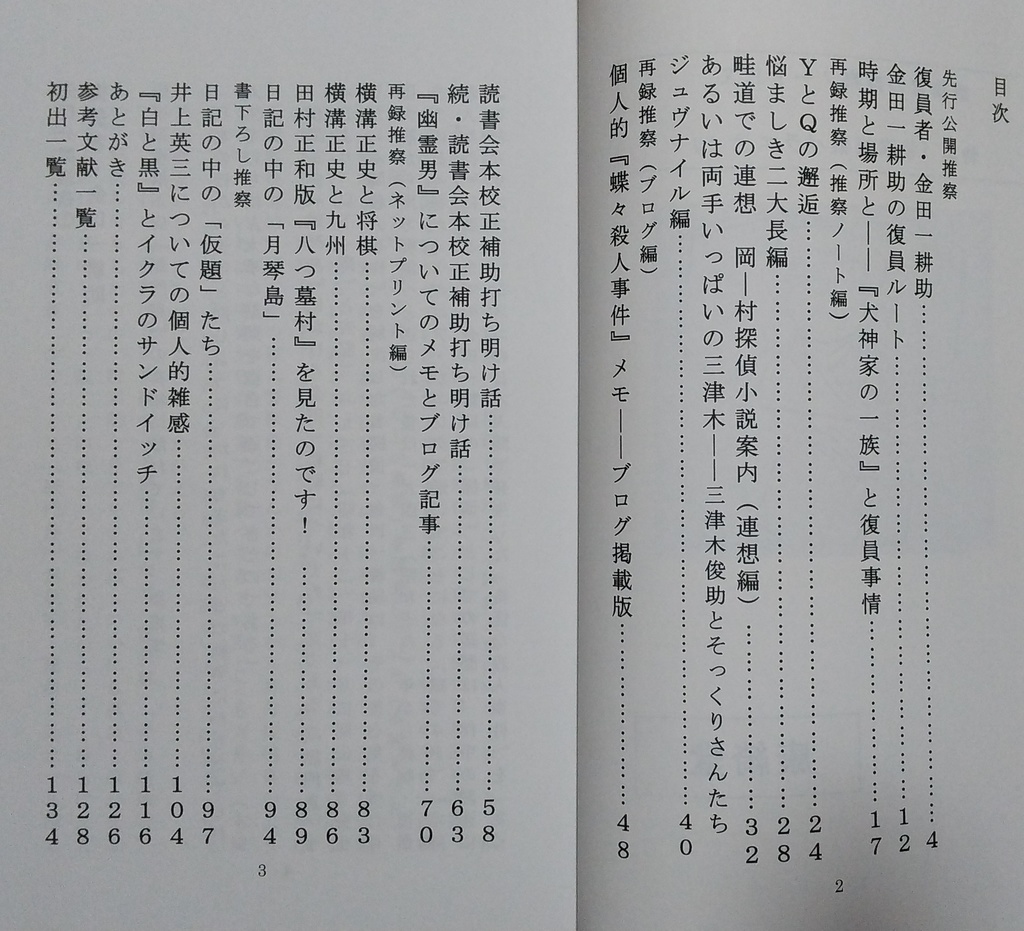 目次
先行公開推察
復員者・金田一耕助……………………………………4
金田一耕助の復員ルート……………………………………12
時期と場所と――『犬神家の一族』と復員事情……………17
再録推察（推察ノート編）
ＹとＱの邂逅……………………………………24
悩ましき二大長編……………………………………28
畦道での連想　岡―村探偵小説案内（連想編）……………32
あるいは両手いっぱいの三津木――三津木俊助とそっくりさんたち
ジュヴナイル編……………………………………40
再録推察（ブログ編）
個人的『蝶々殺人事件』メモ――ブログ掲載版……………48
2
読書会本校正補助打ち明け話……………………………………58
続・読書会本校正補助打ち明け話……………………………………63
『幽霊男』についてのメモとブログ記事……………………70
再録推察（ネットプリント編）
横溝正史と将棋……………………………………83
横溝正史と九州……………………………………86
田村正和版『八つ墓村』を見たのです！……………………89
日記の中の「月琴島」……………………………………94
書下ろし推察
日記の中の「仮題」たち……………………………………97
井上英三についての個人的雑感……………………………104
『白と黒』とイクラのサンドイッチ……………………………116
あとがき……………………………………126
参考文献一覧……………………………………128
初出一覧……………………………………134
3